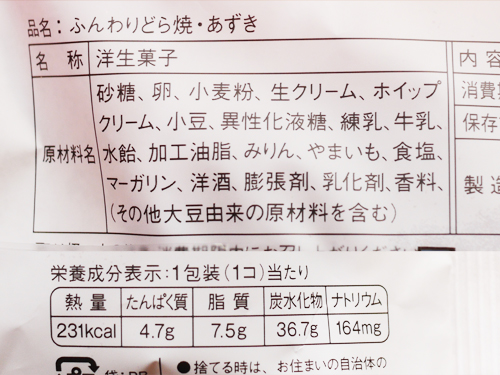 品名：ふんわりどら焼・あずき
名 称 洋生菓子 内 容
砂糖、卵、小麦粉、生クリーム、ホイップ 消費期
クリーム、小豆、異性化液糖、練乳、牛乳、 保存
原材料名 水飴、加工油脂、みりん、やまいも、食塩、
マーガリン、洋酒、膨張剤、乳化剤、香料、 製 造
(その他大豆由来の原材料を含む)
栄養成分表示：1包装(1コ)当たり
熱 量 たんぱく質 脂 質 炭水化物 ナトリウム
231kcal 4.7g 7.5g 36.7g 164mg
●捨てる時は、お住まいの自治体の